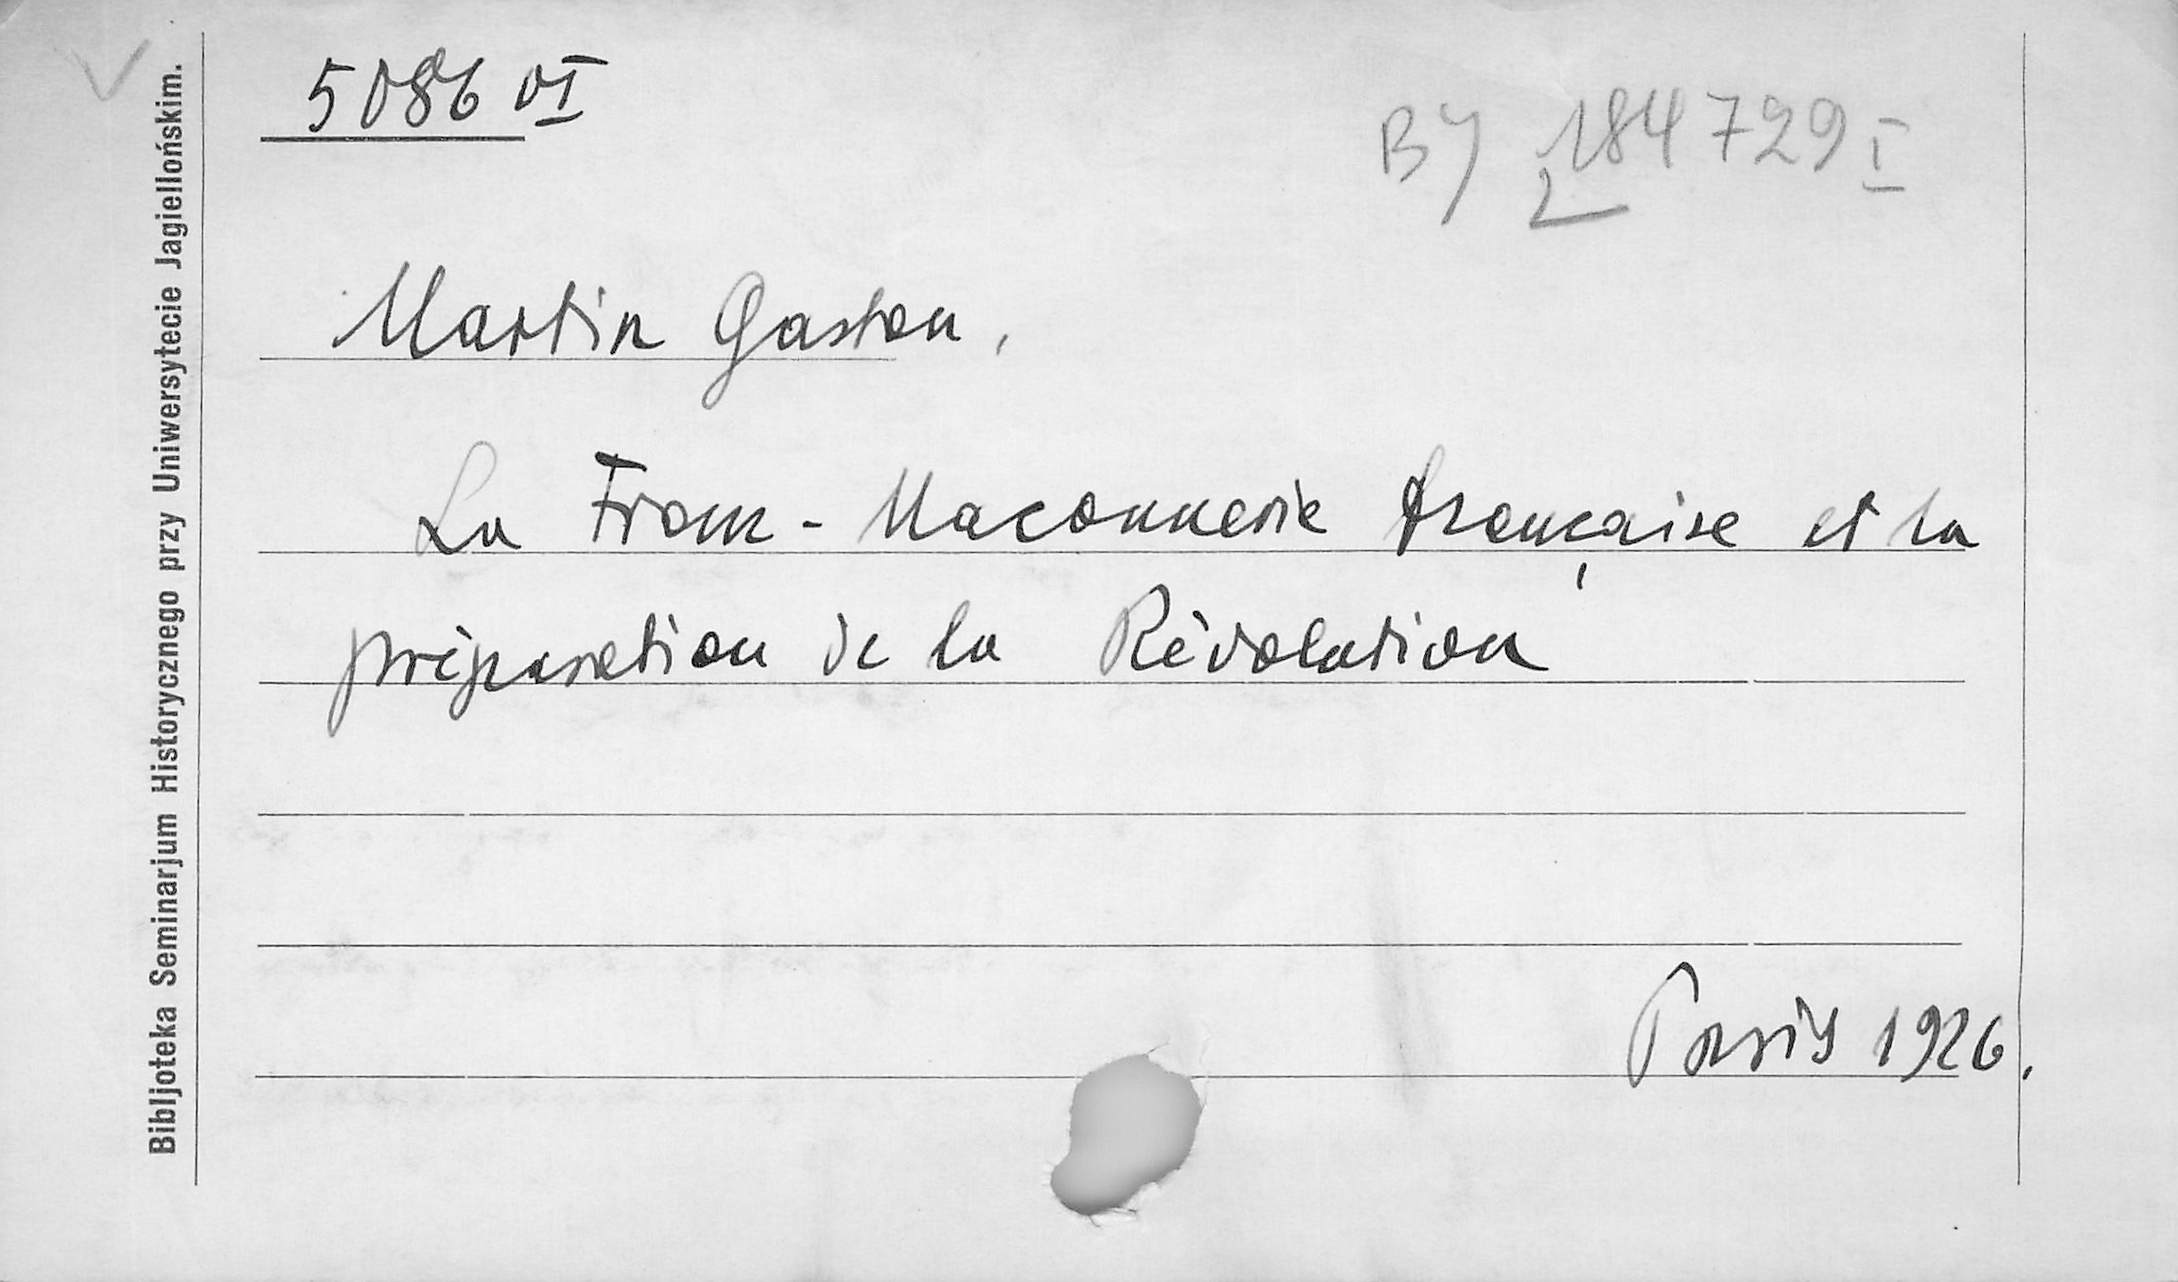 5086 VI
BJ 184729 I
2
Martin Gaston.
La Franc-Maconnerie française et la
préparation de la Révolution
Paris 1926.
Bibljoteka Seminarjum Historycznego przy Uniwersytecie Jagiellońskim.